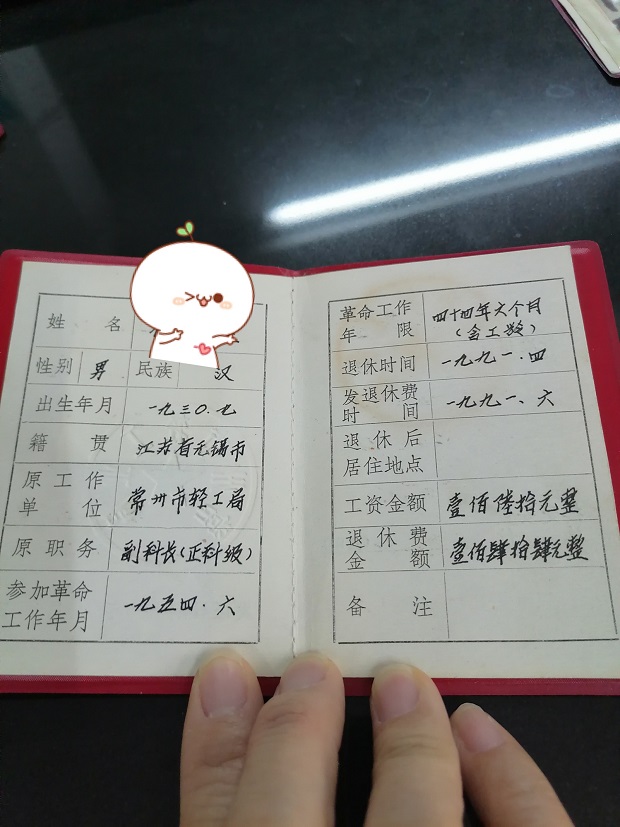 姓 名
性别 男 民族 汉
出生年月 一九三〇.九
籍 贯 江苏省无锡市
原工作
单 位 常州市轻工局
原职务 副科长(正科级)
参加革命
工作年月 一九五四.六
革命工作
年 限 四十四年六个月
(含工龄)
退休时间 一九九一.四
发退休费
时 间 一九九一、六
退休后
居住地点
工资金额 壹佰陆拾元整
退休费
金 额 壹佰肆拾肆元整
备 注